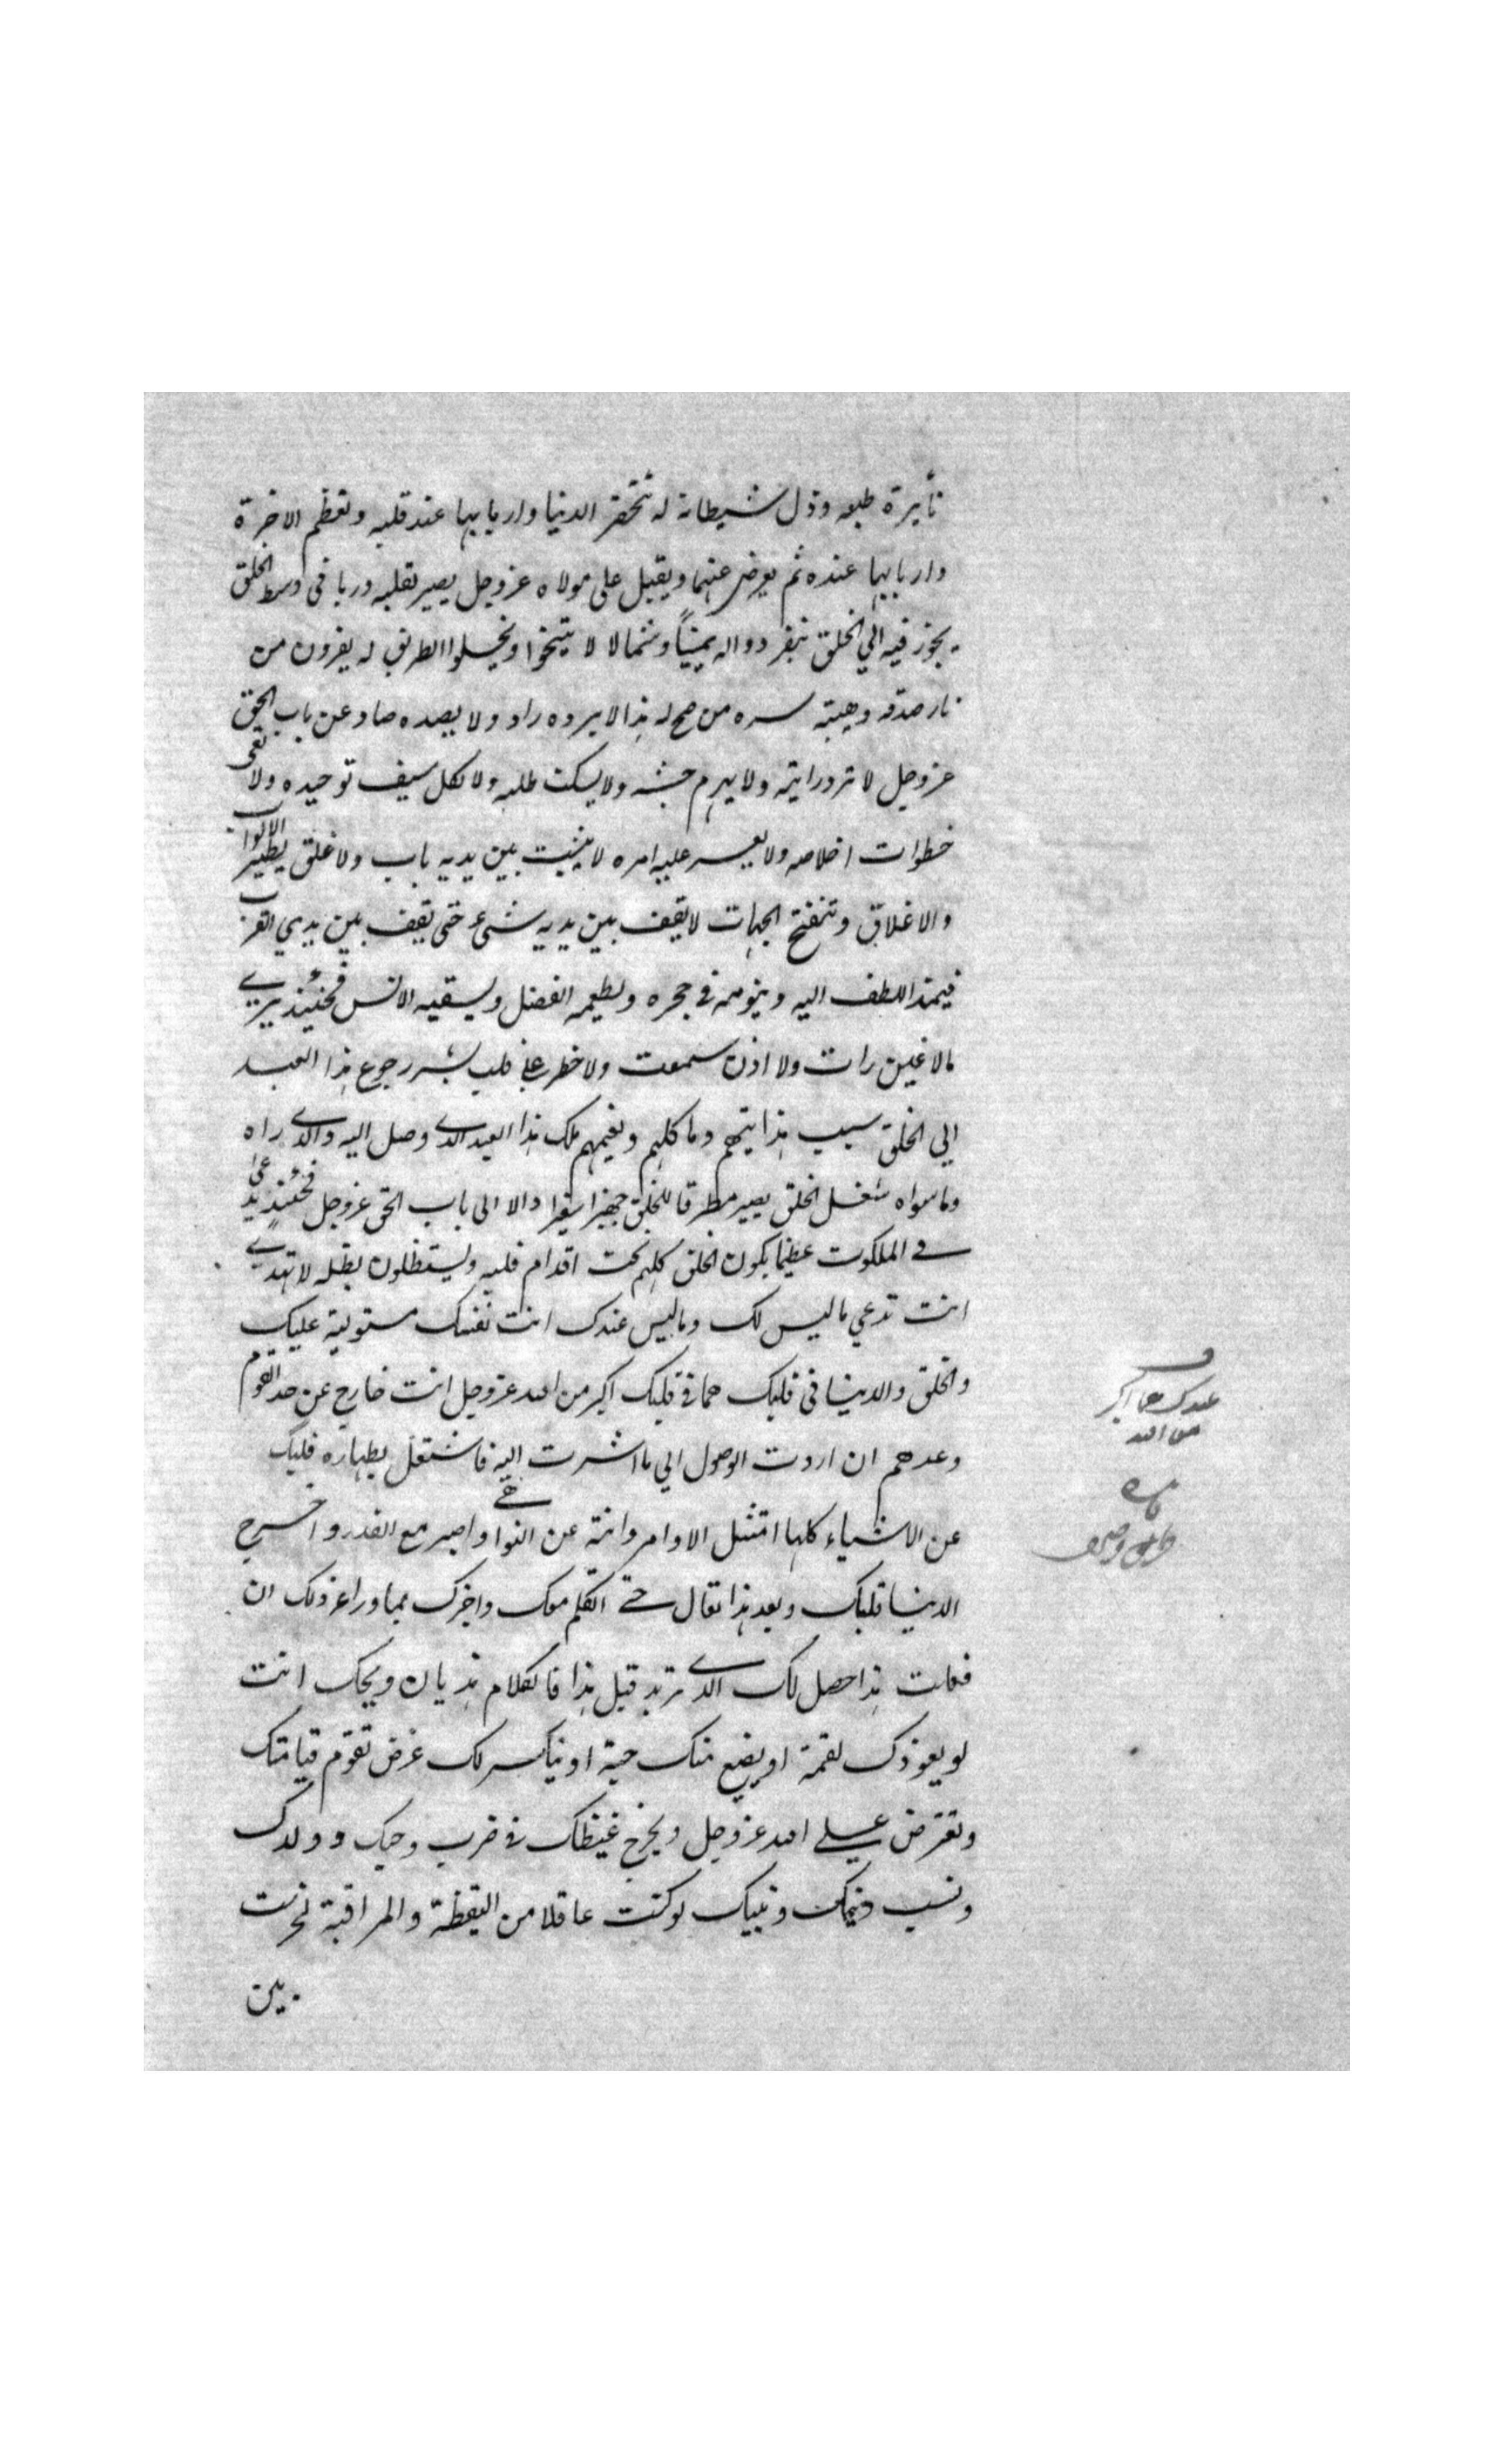 نأيرة طبعه وذل شيطانه له تتحقر الدنيا واربابها عند قلبه وتعظم الاخرة
واربابها عنده ثم يعرض عنهما ويقبل على مولاه عز وجل يصير لقلبه دربا في وسط الخلق
يجوز فيه الي الخلق يمينا وشمالا لا ويخلوا الطريق له يفرون من
نار صدقه وهيبته سره من صح له هذا لا يرده راد ولا يصده صاد عن باب الحق
عز وجل لا ترد رايته ولا يهزم جيشه ولا يسكت طلبه ولا يكل سيف توحيده ولا تعى
خطوات اخلاصه ولا يعسر عليه امره لا يثبت بين يديه باب ولا غلق يطير الابواب
والاغلاق وتنفتح الجهات لا يقف بين يديه شيء حتى يقف بين يدي القرب
اللطف اليه وينومه في حجره ويطعمه الفضل ويسقيه الانس فحينئذ يري
مالا عين رات ولا اذن سمعت ولا خطر على قلب بشر رجوع هذا العبد
الي الخلق سبب هدايتهم وما كلهم ملك هذا العبد الدي وصل اليه والدي راه
وما سواه شغل الخلق يصير مطرقا للخلق جهبذا سفيرا دالا الى باب الحق عز وجل فحينئذ يدعى
في الملكوت عظيما يكون الخلق كلهم تحت اقدام قلبه ويستظلون بظله لا تهدي
انت تدعي ما ليس لك وما ليس عندك انت نفسك مستولية عليك
والخلق والدنيا فى قلبك هما في قلبك اكبر من الله عز وجل انت خارج عن حد القوم
وعدهم ان اردت الوصول الي ما اشرت اليه فاشتغل بطهاره قلبك
عن الاشياء كلها امتثل الاوامر وانته عن النواهي واصبر مع القدر واخرج
الدنيا قلبك وبعد هذا تعال حتى اتكلم معك واخبرك بما ورا عز ذلك ان
فعلت هذا حصل لك الدي تريد قبل هذا فالكلام هذيان ويحك انت
لو يعوذك لقمة او يضع منك حبة او ينكسر لك عرض تقوم قيامتك
وتعترض على الله عز وجل ويخرج غيظك في ضرب وحبك وولدك
ونسب دينك ونبيك لو كنت عاقلا من اليقظة والمراقبة لخرست
بين
عندك هما اكبر
من الله